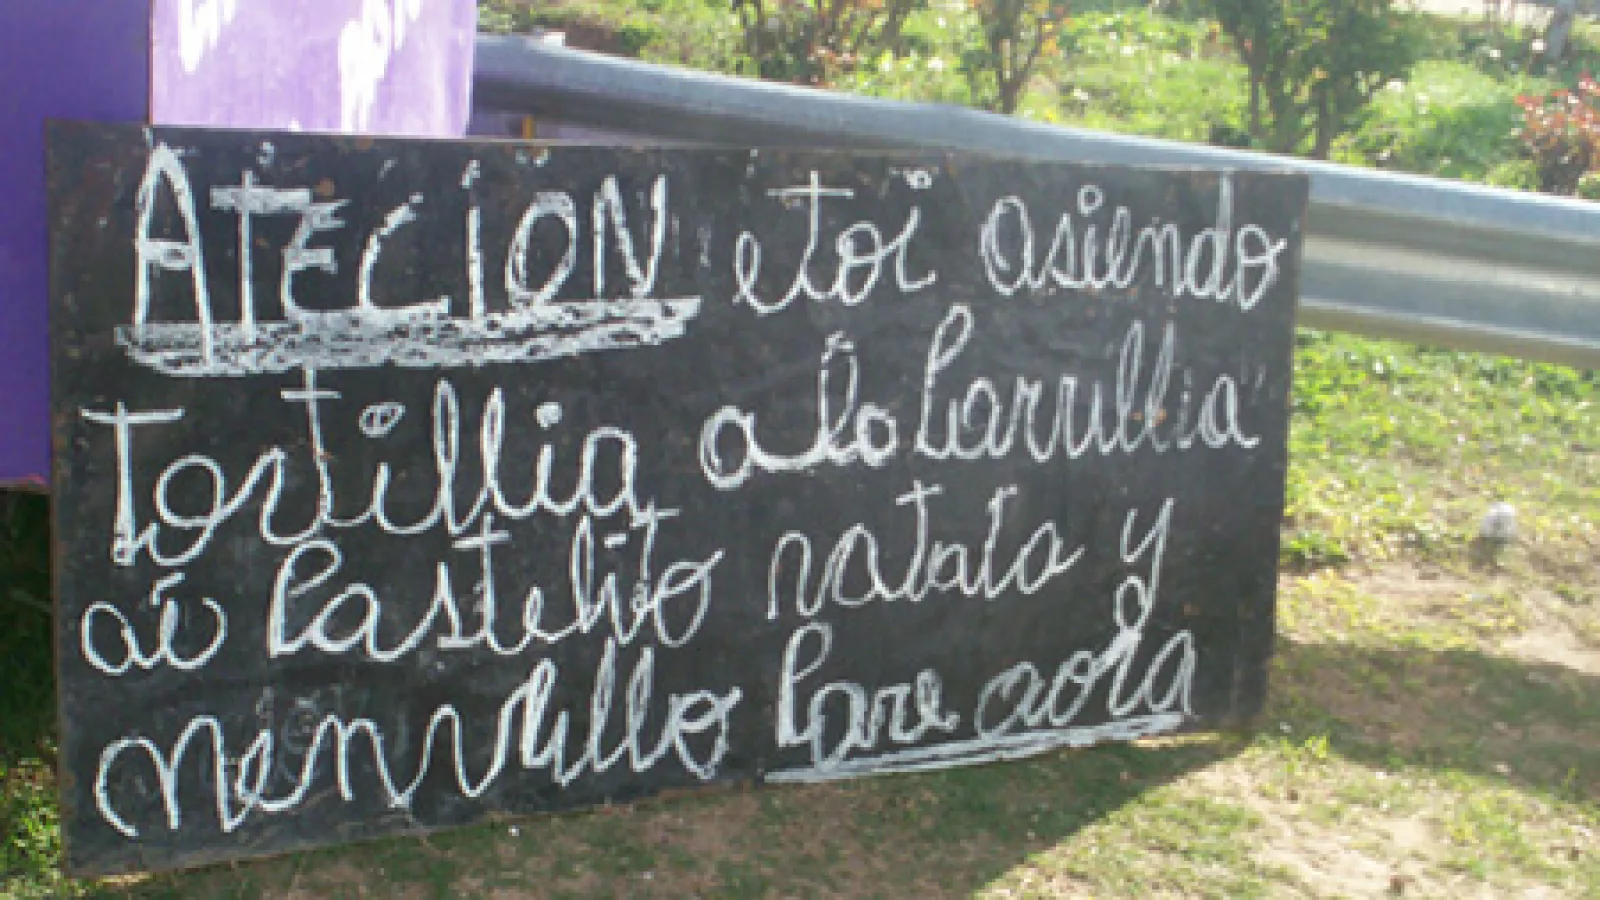 ATECION etoi asiendo
Tortillia a lo Parrillia
ai Pastelito vatata y
menvrillo Pare aora